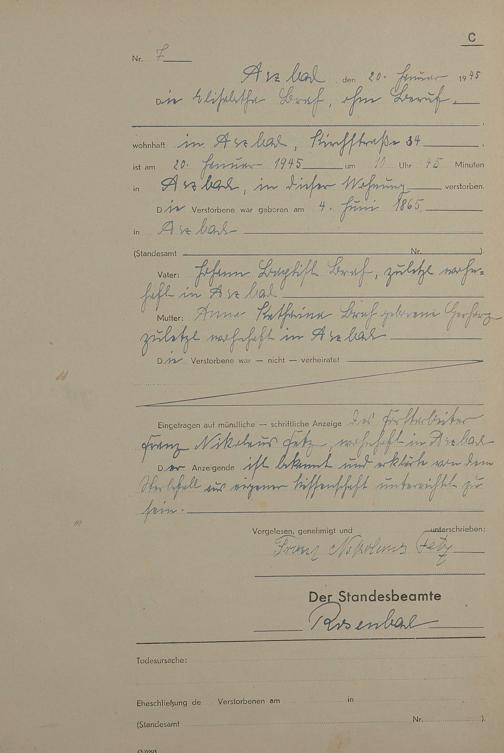 C
Nr. 7
Arzbach, den 20. Januar 1945
Die Elisabetha Graf, ohne Beruf
wohnhaft in Arzbach, Kirchstraße 34
ist am 20. Januar 1945 um Uhr 45 Minuten
in Arzbach, in dieser Wohnung verstorben.
Die Verstorbene war geboren am 4. Juni 1865
in Arzbach
(Standesamt Nr. )
Vater: Johann Baptist Graf, zuletzt wohn-
haft in Arzbach
Mutter: Anna Katharina Graf geborene
zuletzt wohnhaft in Arzbach
Die Verstorbene war — nicht — verheiratet
Eingetragen auf mündliche — schriftliche Anzeige des Forstarbeiter
Franz Nikolaus Fetz, wohnhaft in Arzbach
Der Anzeigende ist bekannt und erklärte von dem
Sterbefall aus eigener Wissenschaft unterrichtet zu
sein.
Vorgelesen, genehmigt und unterschrieben:
Franz Nikolaus Fetz
Der Standesbeamte
Rosenbach
Todesursache:
Eheschließung de Verstorbenen am in
(Standesamt Nr. ).